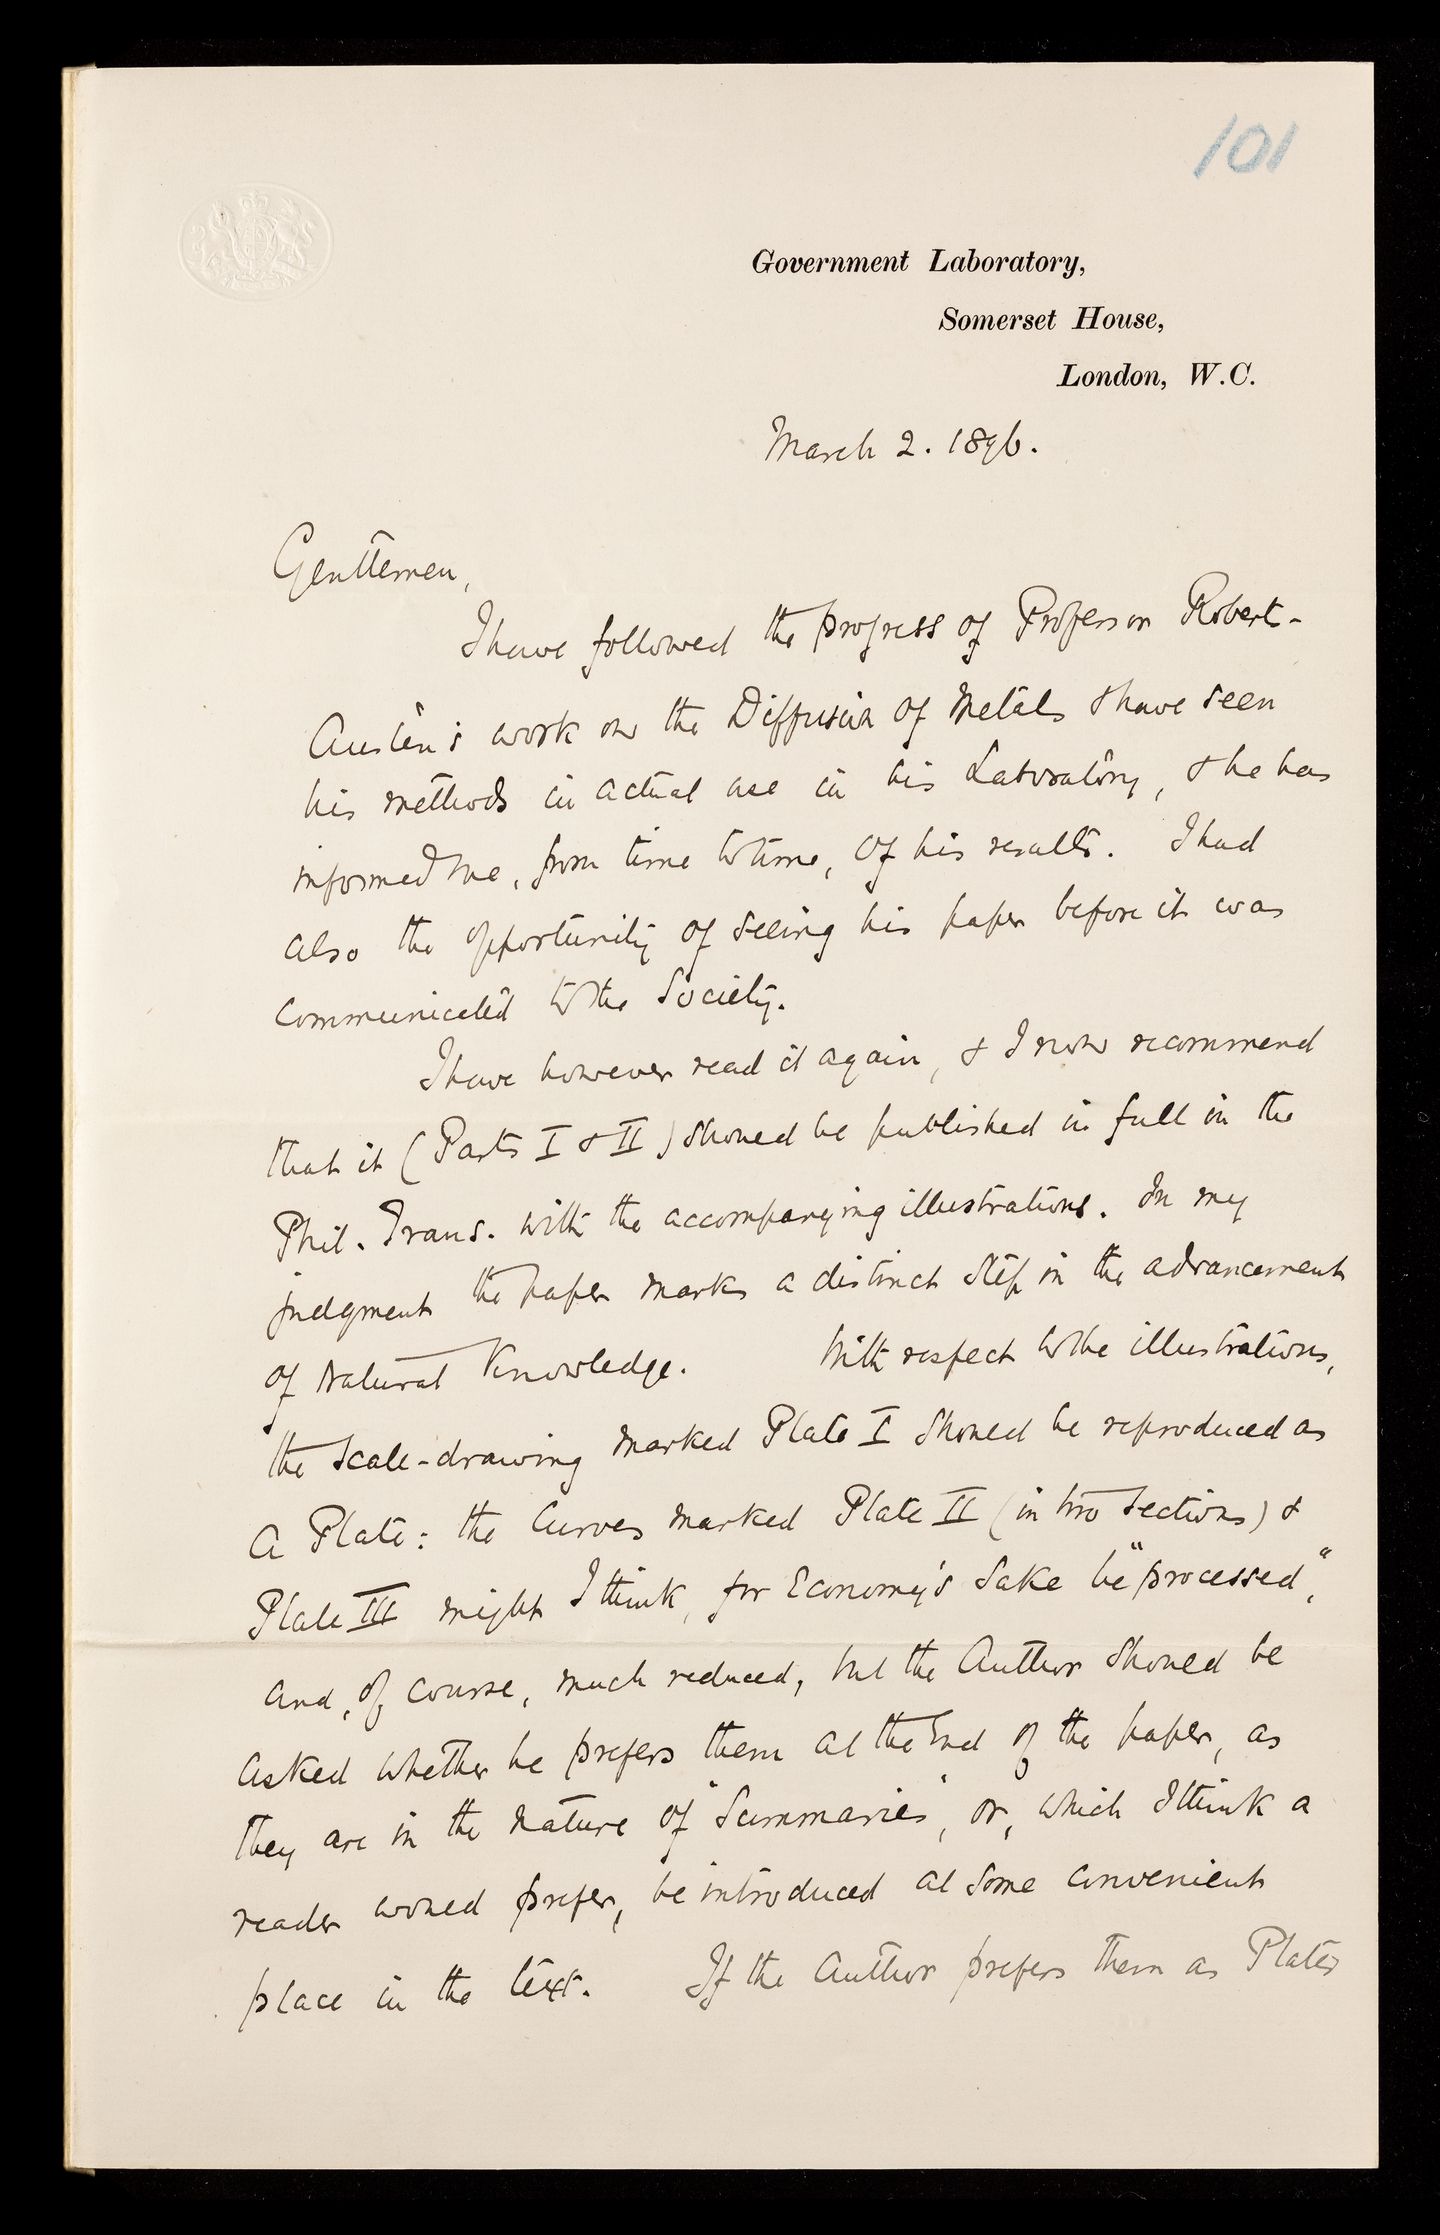 101
Government Laboratory,
Somerset House,
London, W.C.
March 2. 1896.
Gentlemen,
I have followed the progress of Professor Roberts-
Austen's work on the Diffusion of Metals & have seen
his methods in actual use in his Laboratory, & he has
informed me, from time to time, of his results. I had
also the opportunity of seeing his paper before it was
communicated to the Society.
I have however read it again, & I now recommend
that it (Parts I & II) should be published in full in the
Phil. Trans. with the accompanying illustrations. In my
judgment the paper marks a distinct step in the advancement
of Natural Knowledge. With respect to the illustrations,
the scale-drawing marked Plate I should be reproduced as
a Plate: the Curves marked Plate II (in two sections) &
Plate III might I think, for Economy's sake be "processed",
and, of course, much reduced, but the Author should be
asked whether he prefers them at the End of the paper, as
they are in the nature of "Summaries", or, which I think a
reader would prefer, be introduced at some convenient
place in the text. If the Author prefers them as Plates